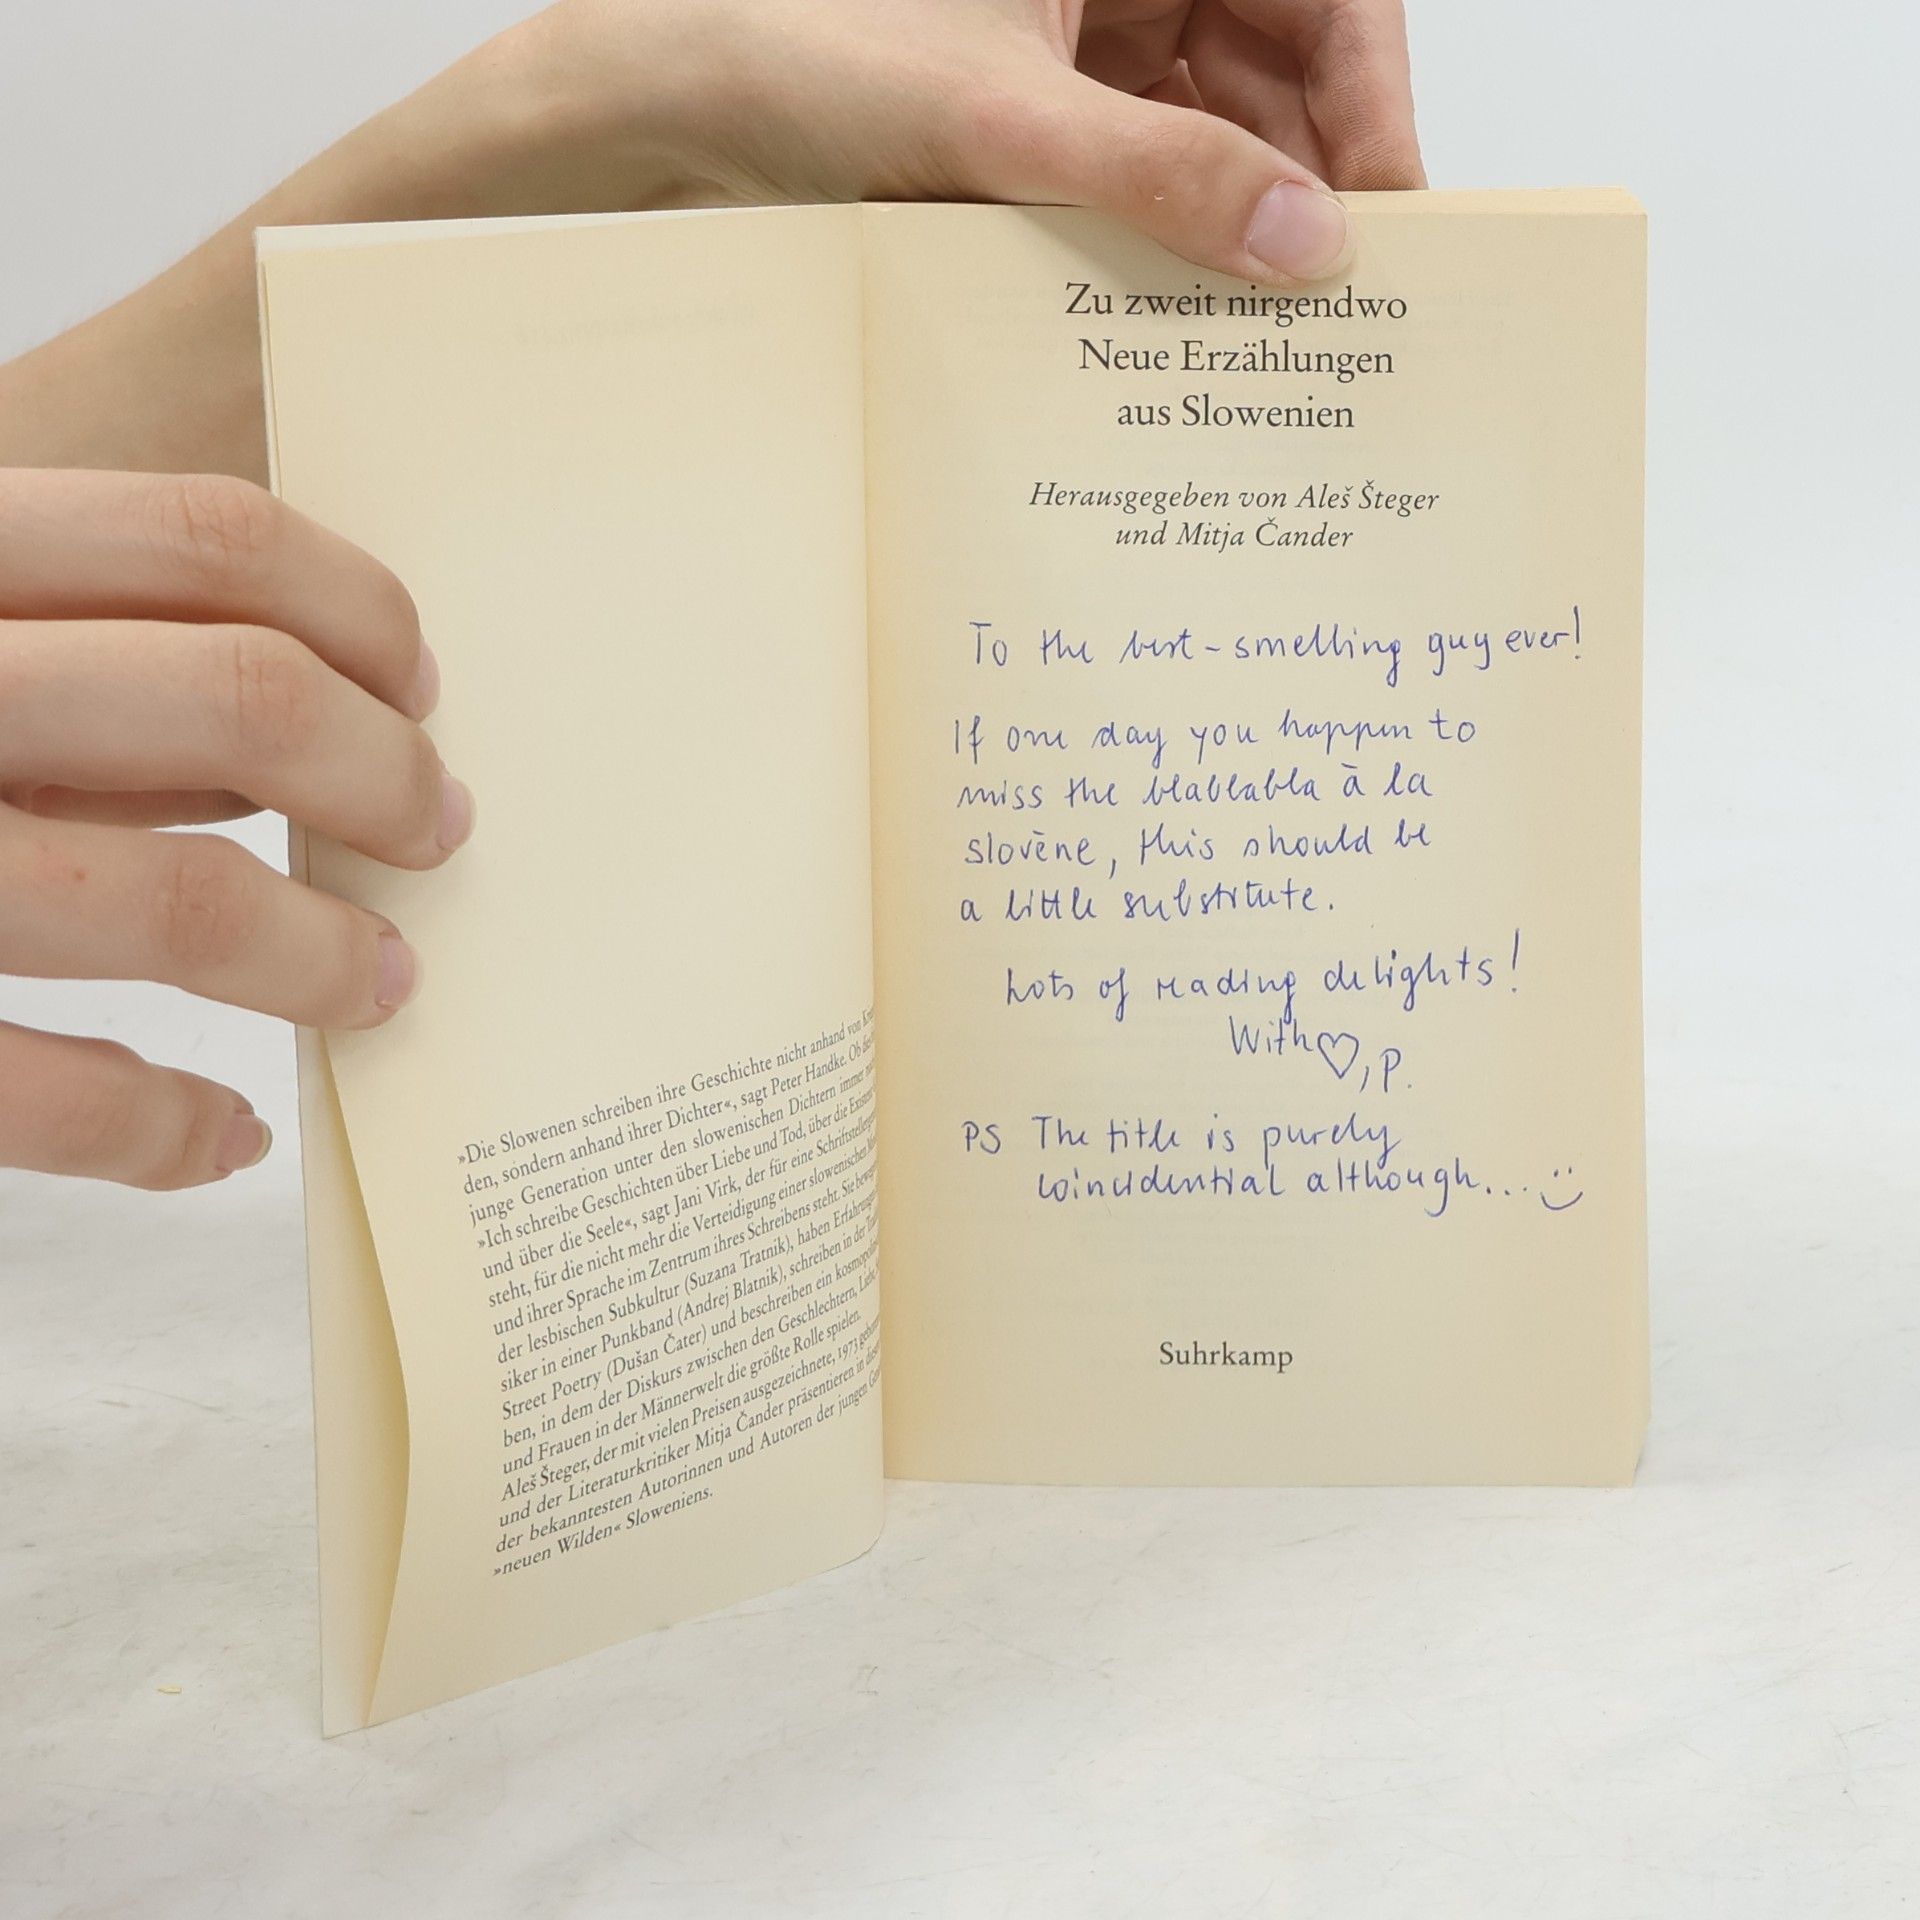 »Die Slowenen schreiben ihre Geschichte nicht anhand von
den, sondern anhand ihrer Dichter«, sagt Peter Handke. Ob
junge Generation unter den slowenischen Dichtern immer
»Ich schreibe Geschichten über Liebe und Tod, über die
und über die Seele«, sagt Jani Virk, der für eine
steht, für die nicht mehr die Verteidigung einer slowenischen
und ihrer Sprache im Zentrum ihres Schreibens steht. Sie
der lesbischen Subkultur (Suzana Tratnik), haben
siker in einer Punkband (Andrej Blatnik), schreiben in der
Street Poetry (Dušan Čater) und beschreiben ein
ben, in dem der Diskurs zwischen den Geschlechtern,
und Frauen in der Männerwelt die größte Rolle spielen.
Aleš Šteger, der mit vielen Preisen ausgezeichnete, 1973
und der Literaturkritiker Mitja Čander präsentieren in
der bekanntesten Autorinnen und Autoren der jungen
»neuen Wilden« Sloweniens.
Zu zweit nirgendwo
Neue Erzählungen
aus Slowenien
Herausgegeben von Aleš Šteger
und Mitja Čander
To the best-smelling guy ever!
If one day you happen to
miss the blablabla à la
slovène, this should be
a little substitute.
Lots of reading delights!
With ♡, P.
PS The title is purely
coincidential although... :)
Suhrkamp